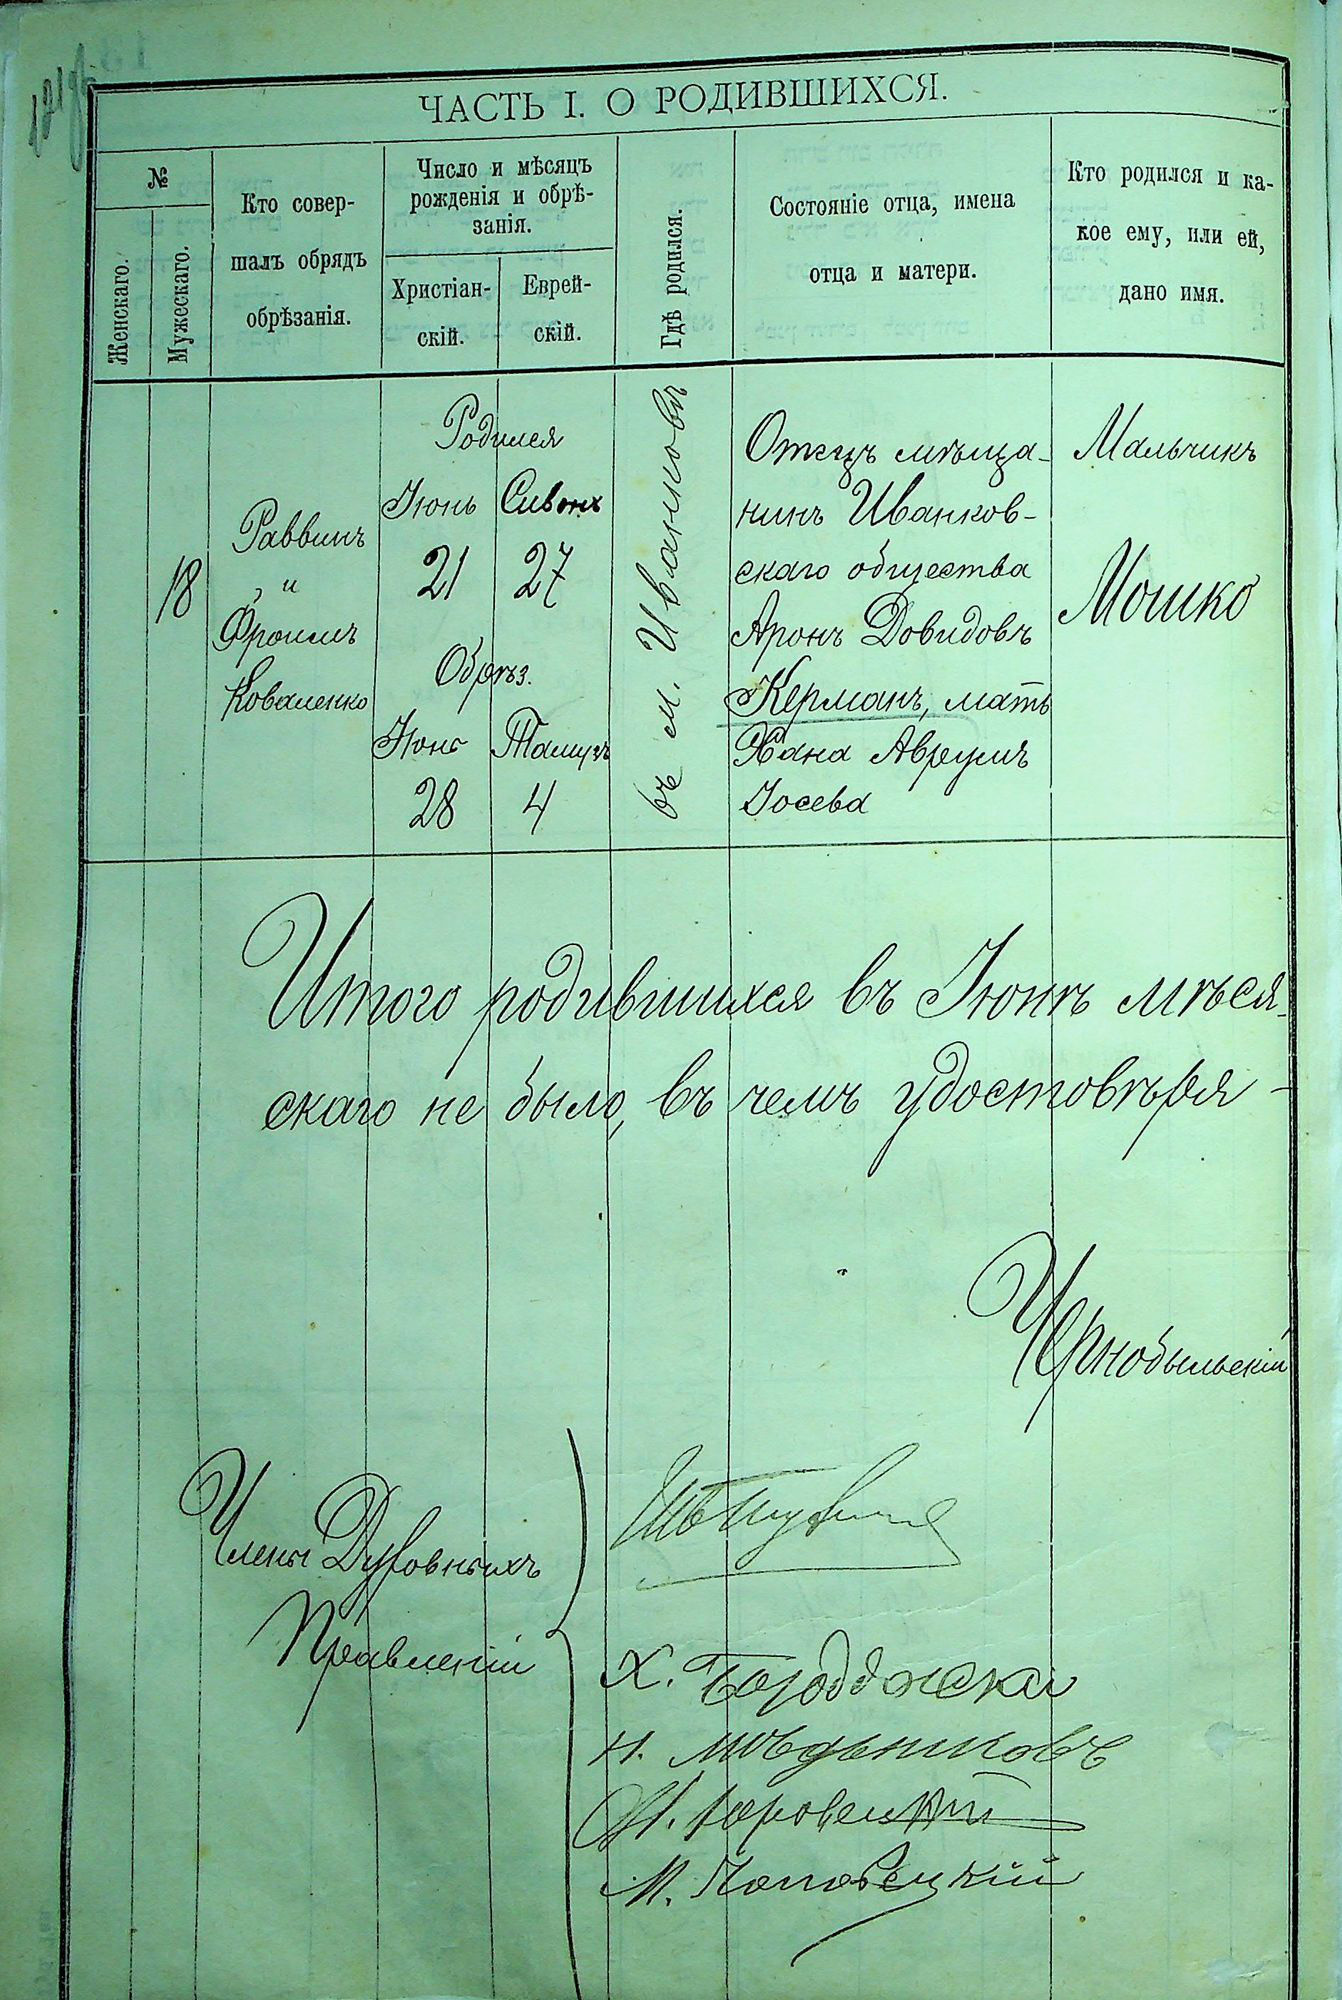 ЧАСТЬ I. О РОДИВШИХСЯ.
№
Женскаго.
Мужескаго.
Кто совер-
шалъ обрядъ
обрѣзанія.
Число и мѣсяцъ
рожденія и обрѣ-
занія.
Христіан-
скій.
Еврей-
скій.
Гдѣ родился.
Состояніе отца, имена
отца и матери.
Кто родился и ка-
кое ему, или ей,
дано имя.
18
Раввинъ
и
Фроимъ
Коваленко
Родился
Іюнь Сивонъ
21 27
Обрѣз.
Іюнь Тамузъ
28 4
въ м. Иванковѣ
Отецъ мѣща-
нинъ Иванков-
скаго общества
Аронъ Довидовъ
Керманъ, мать
Хана Аврумъ
Іосева
Мальчикъ
Мошко
Итого родившихся въ Іюнѣ мѣся-
скаго не было, въ чемъ удостовѣря-
Чернобыльскій
Члены Духовныхъ
Правленій
Х.
Н. Мѣдьниковъ